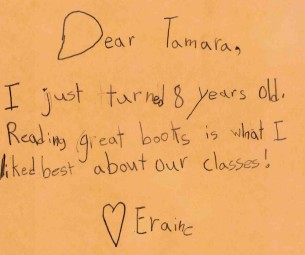 Dear Tamara,
I just turned 8 years old.
Reading great books is what I
liked best about our classes!
♡ Eraine